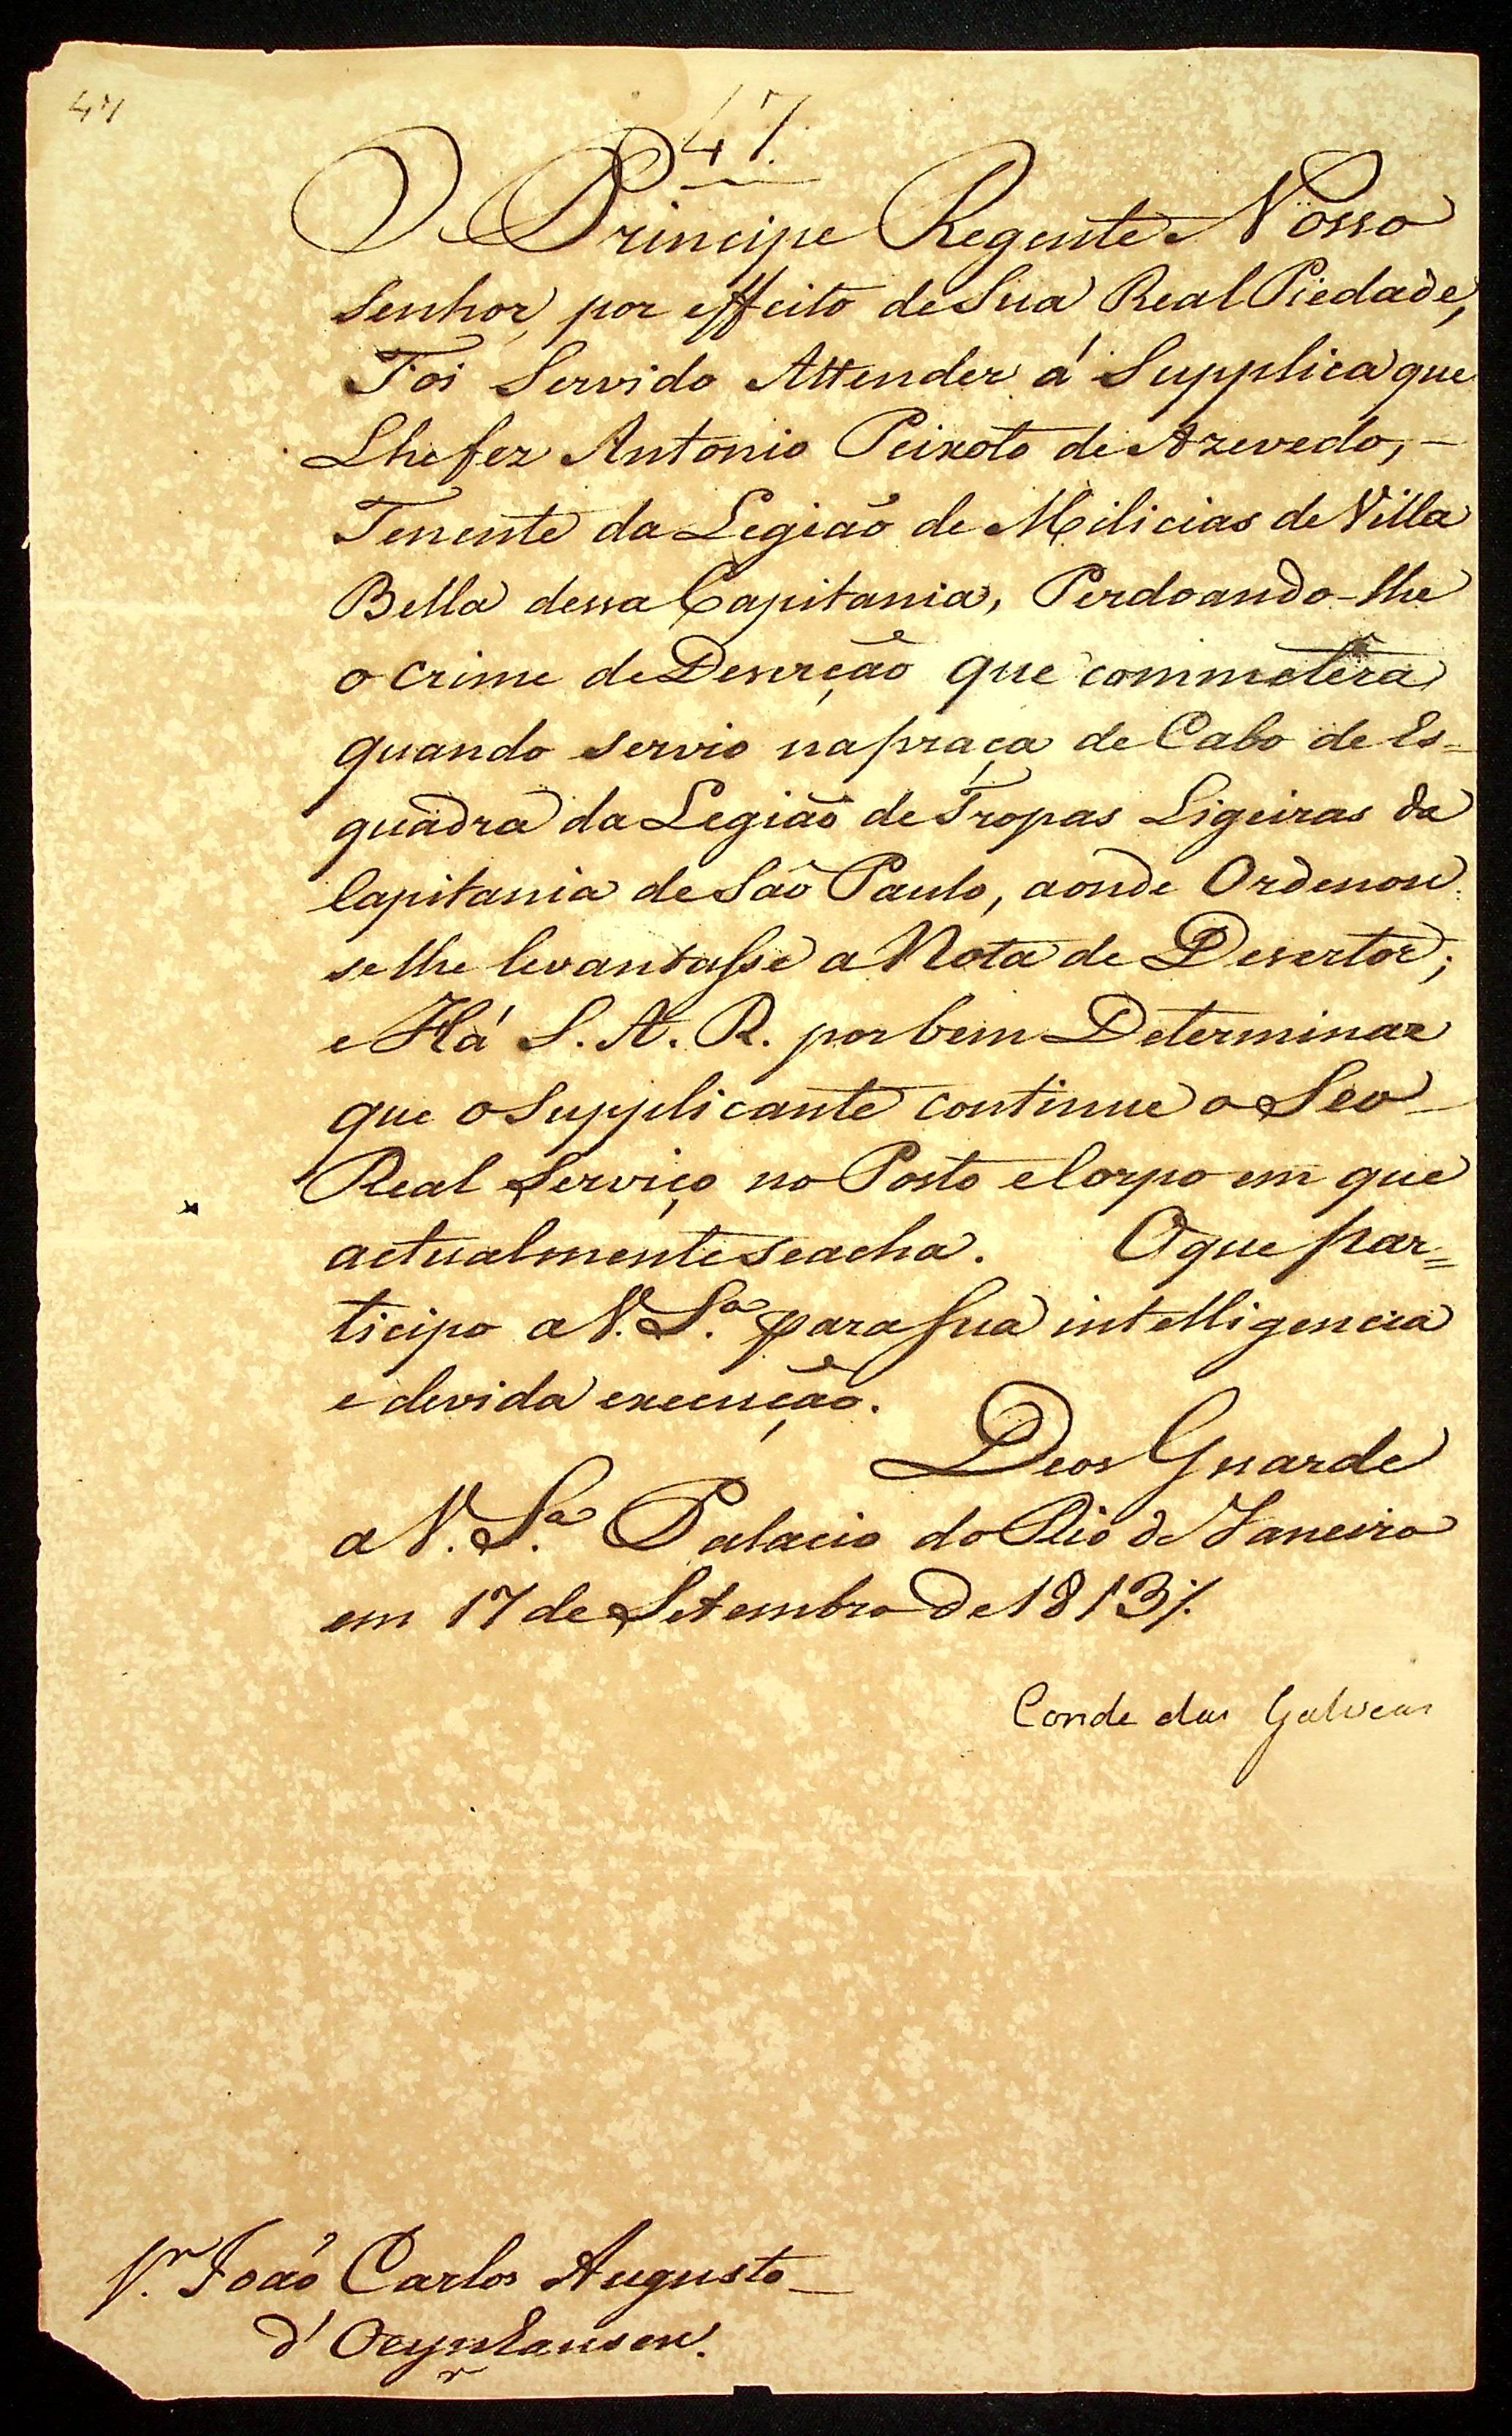 47
47
O Principe Regente Nosso
Senhor, por effeito de Sua Real Piedade,
Foi Servido Attender á Supplica que
Lhe fez Antonio Peixoto de Azevedo, -
Tenente da Legião de Milicias de Villa
Bella dessa Capitania, Perdoando-lhe
o crime de Deserção que commetêra
quando servio na praça de Cabo de Es=
quadra da Legião de Tropas Ligeiras da
Capitania de São Paulo, aonde Ordenou
se lhe levantasse a Nota de Desertor;
e Há S. A. R. por bem Determinar
que o Supplicante continue o Seo
Real Serviço no Posto e Corpo em que
actualmente se acha. O que par=
ticipo a V. Sª. para sua intelligencia
e devida execução.
Deos Guarde
a V. Sª. Palacio do Rio de Janeiro
em 17 de Setembro de 1813 /.
Conde das Galveas
Sr. João Carlos Augusto
d'Oeynhausen.